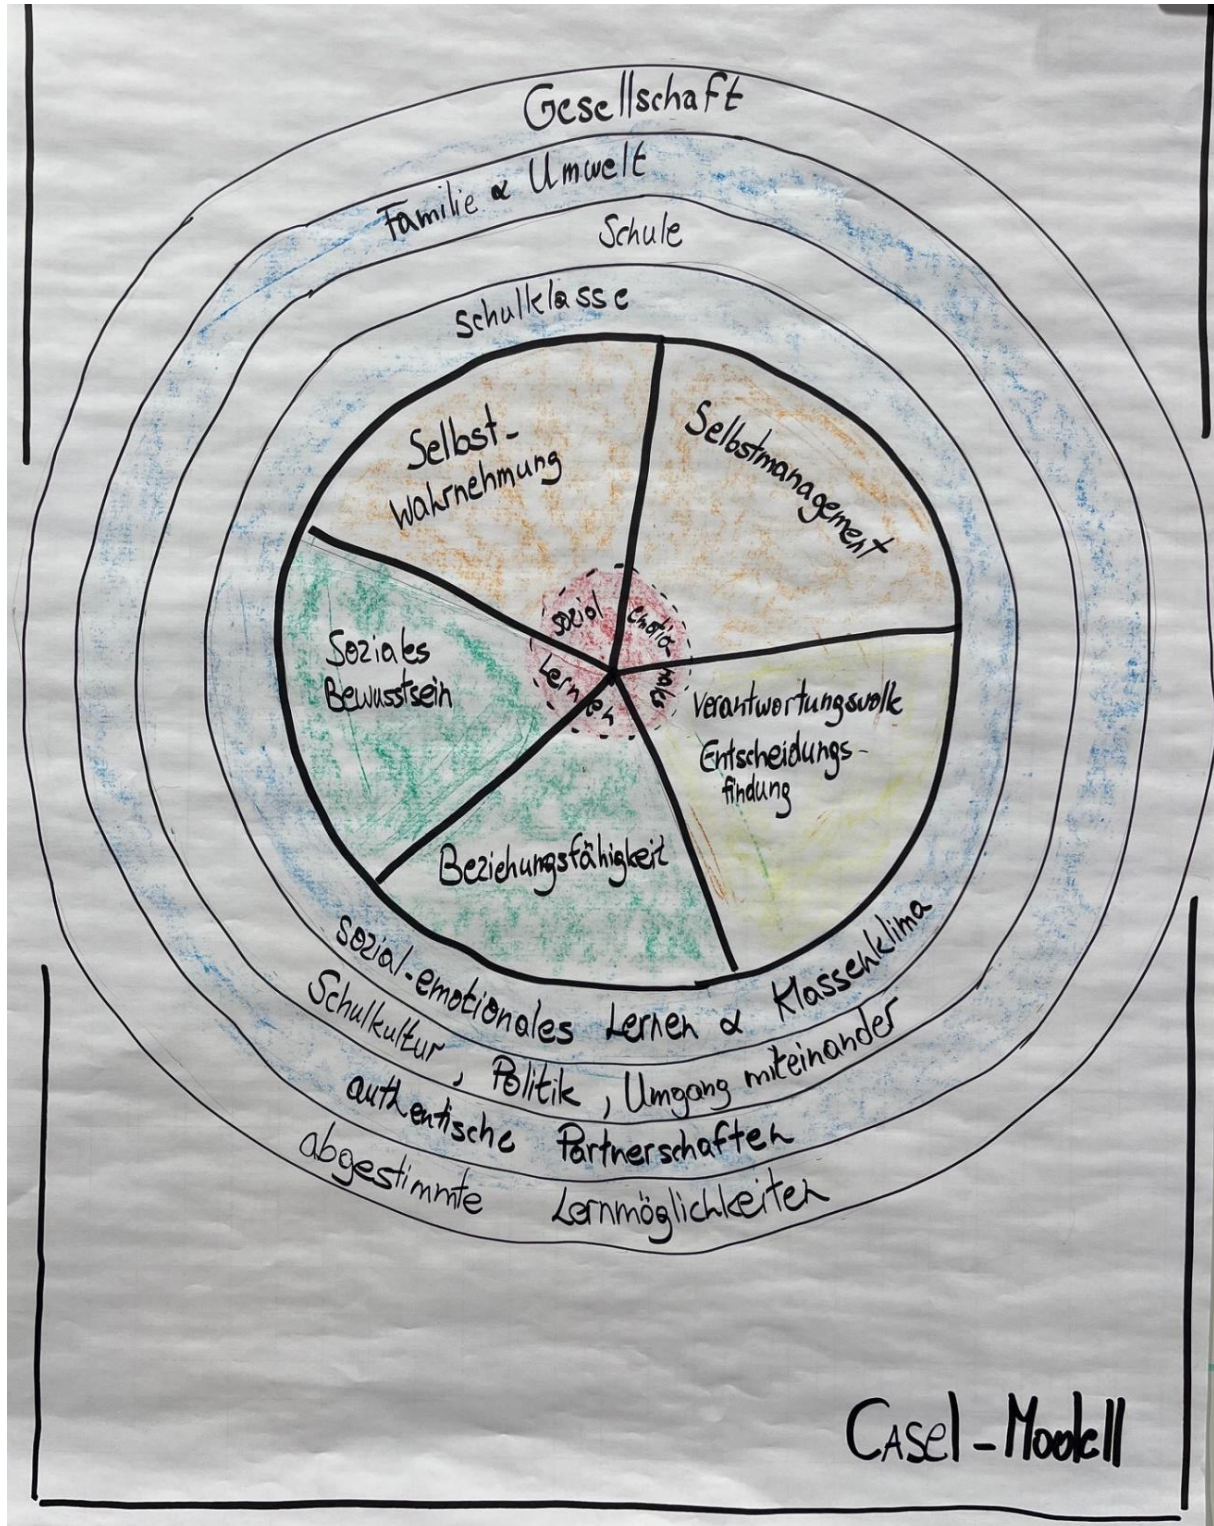 Gesellschaft
Familie & Umwelt
Schule
Schulklasse
Selbst-
wahrnehmung
Selbstmanagement
sozial
emotio
nales
Lernen
Soziales
Bewusstsein
Verantwortungsvolle
Entscheidungs-
findung
Beziehungsfähigkeit
Sozial-emotionales Lernen & Klassenklima
Schulkultur, Politik, Umgang miteinander
authentische Partnerschaften
abgestimmte Lernmöglichkeiten
CASEL-Modell